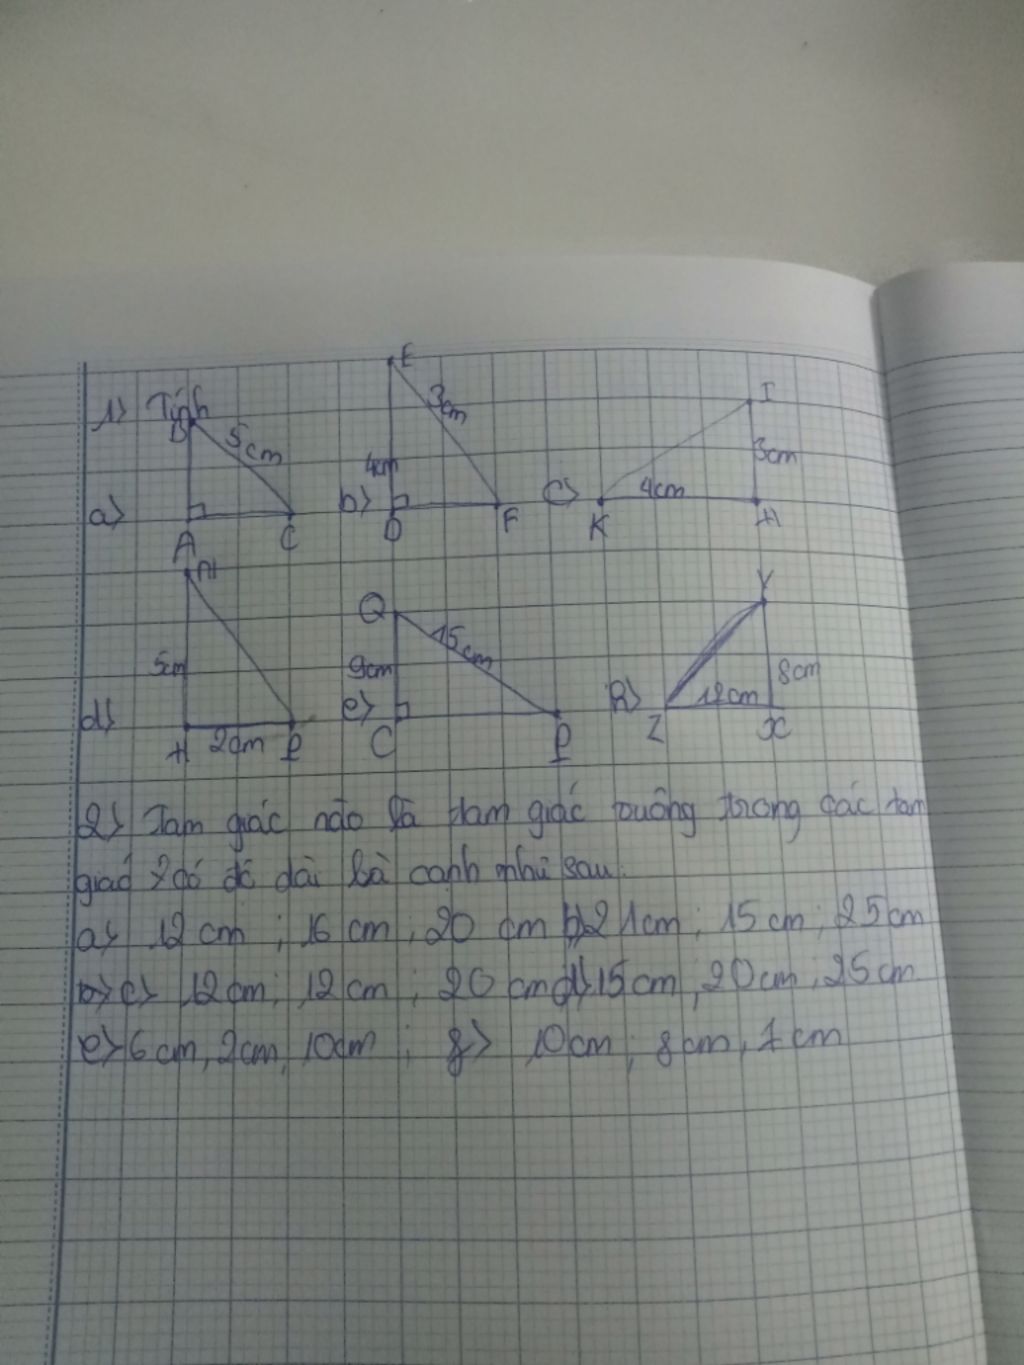 1> Tính
B
5cm
a>
A
C
E
3cm
4cm
b>
D
F
I
3cm
c>
4cm
K
H
M
5cm
d>
H
2cm
P
Q
15cm
9cm
e>
C
P
Y
8cm
12cm
Z
X
2> Tam giác nào là tam giác vuông trong các tam
giác có độ dài ba cạnh như sau:
a> 12 cm ; 16 cm ; 20 cm b> 21cm ; 15 cm ; 25 cm
c> 12 cm ; 12 cm ; 20 cm d> 15cm ; 20cm ; 25 cm
e> 6 cm, 2cm, 10cm ; g> 10cm ; 8cm, 7cm